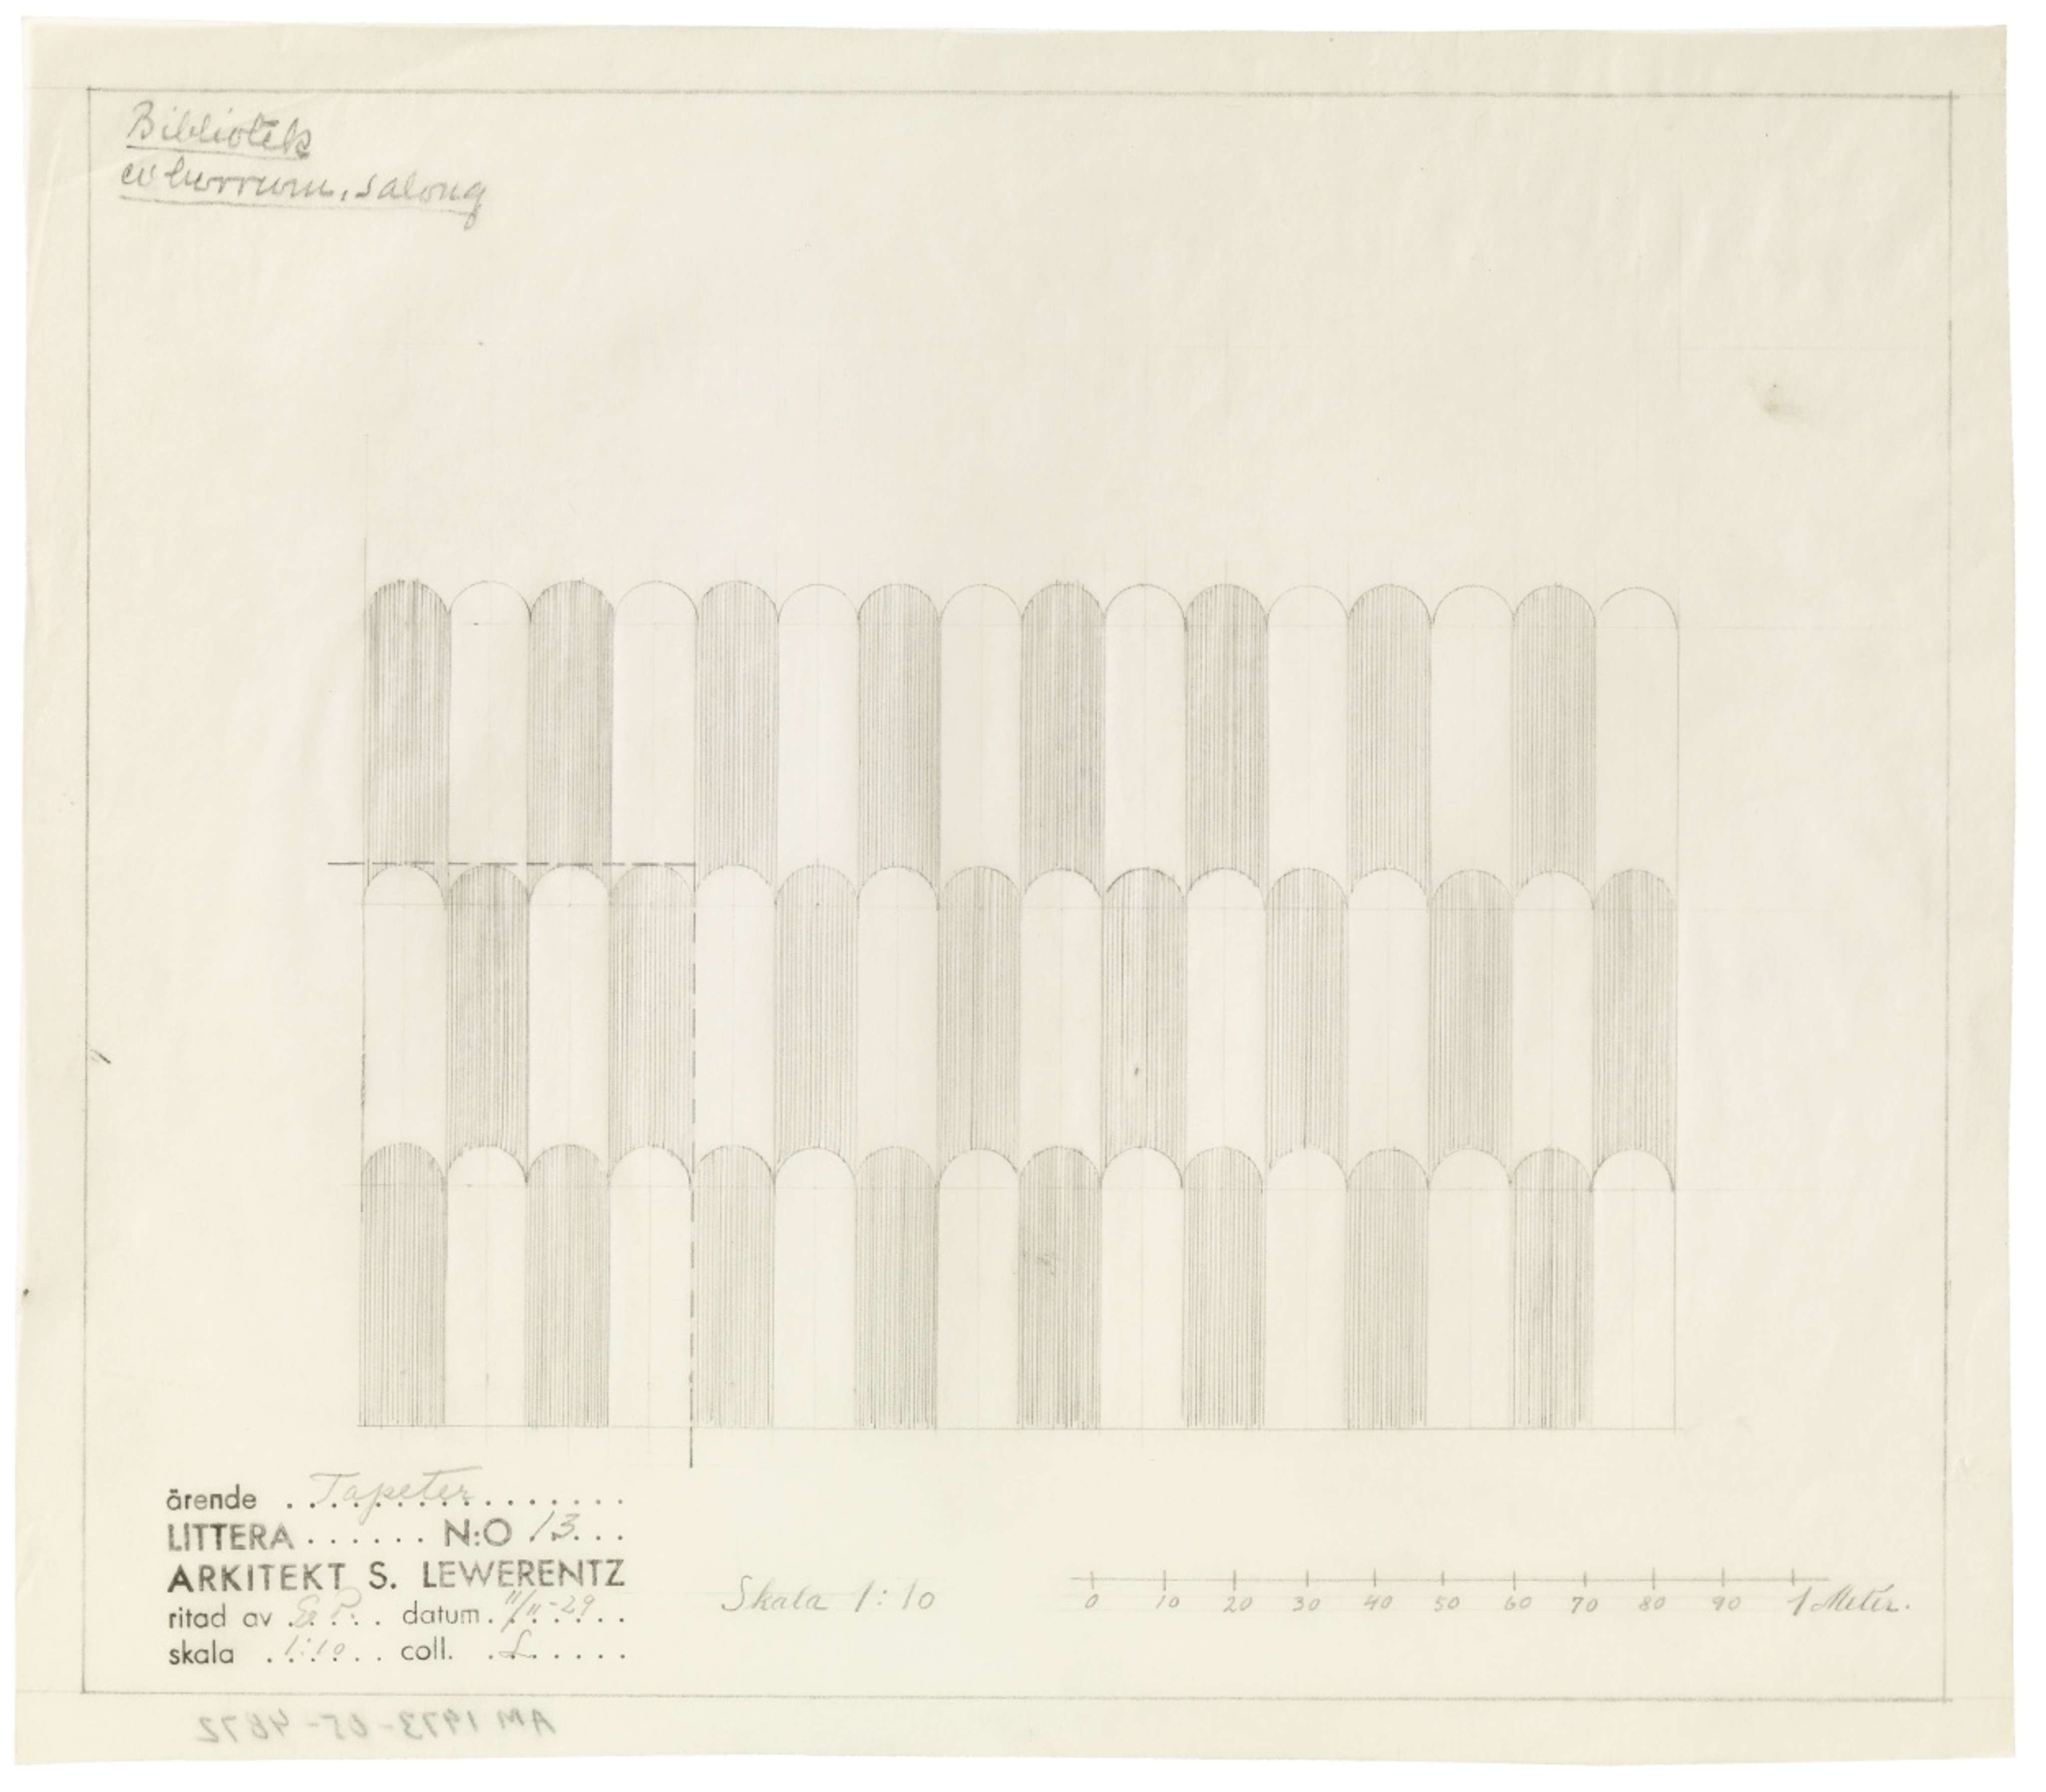 Bibliotek
ev herrum, salong
ärende . . Tapeter . . . . . . .
LITTERA . . . . . . N:O 13 . . .
ARKITEKT S. LEWERENTZ
ritad av . . . . datum . 11/11-29 . .
skala . 1:10 . . coll. . L . . . . .
Skala 1:10
0 10 20 30 40 50 60 70 80 90 1 Meter.
AM 1973-05-4872